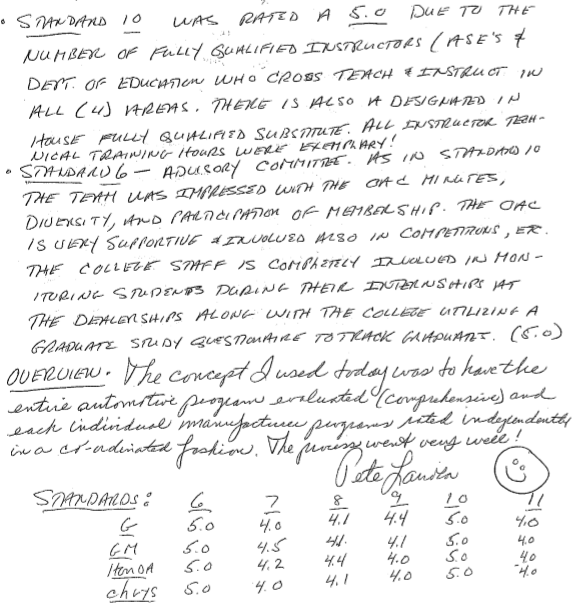 • STANDARD 10 WAS RATED A 5.0 DUE TO THE
NUMBER OF FULLY QUALIFIED INSTRUCTORS (ASE'S &
DEPT. OF EDUCATION WHO CROSS TEACH & INSTRUCT IN
ALL (4) AREAS. THERE IS ALSO A DESIGNATED IN
HOUSE FULLY QUALIFIED SUBSTITUTE. ALL INSTRUCTOR TECH-
NICAL TRAINING HOURS WERE EXEMPLARY!
• STANDARD 6 — ADVISORY COMMITTEE. AS IN STANDARD 10
THE TEAM WAS IMPRESSED WITH THE OAC MINUTES,
DIVERSITY, AND PARTICIPATION OF MEMBERSHIP. THE OAC
IS VERY SUPPORTIVE & INVOLVED ALSO IN COMPETITIONS, ETC.
THE COLLEGE STAFF IS COMPLETELY INVOLVED IN MON-
ITORING STUDENTS DURING THEIR INTERNSHIPS AT
THE DEALERSHIPS ALONG WITH THE COLLEGE UTILIZING A
GRADUATE STUDY QUESTIONAIRE TO TRACK GRADUATES. (5.0)
OVERVIEW. The concept I used today was to have the
entire automotive program evaluated (comprehensive) and
each individual manufacture programs rated independently
in a co-ordinated fashion. The process went very well!
Pete
STANDARDS: 6 7 8 9 10 11
G 5.0 4.0 4.1 4.4 5.0 4.0
GM 5.0 4.5 4.1 5.0 4.0
HONDA 5.0 4.2 4.4 4.0 5.0 4.0
chrys 5.0 4.0 4.1 4.0 5.0 4.0